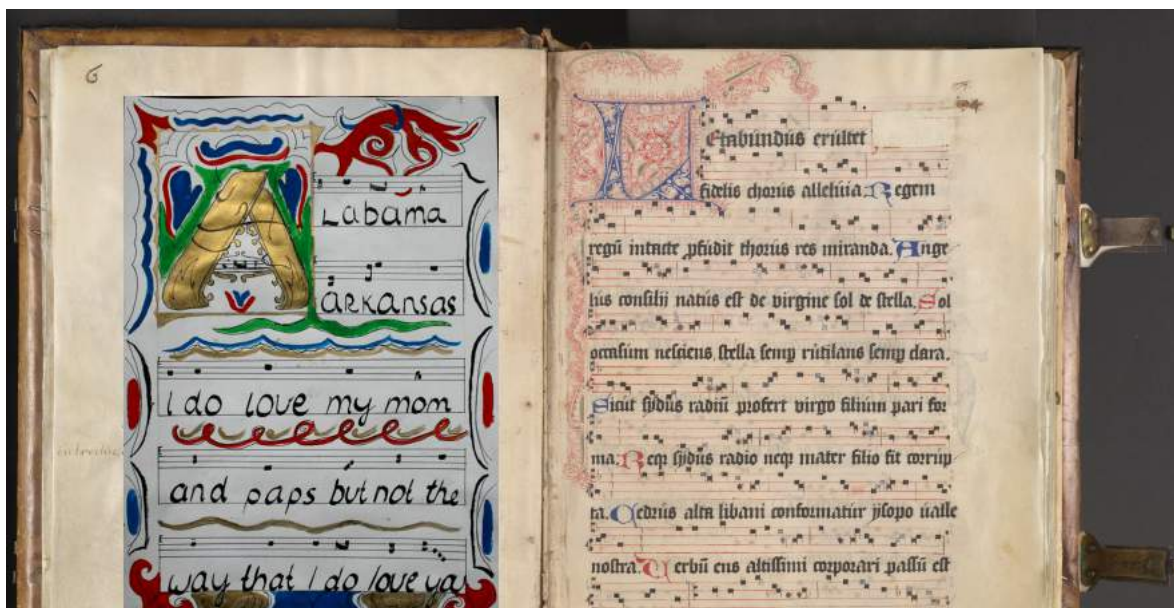 6
ALabama
arkansas
I do love my mom
and paps but not the
way that I do love ya
LEtabundus exultet
fidelis chorus alleluia. Regem
regū intacte ꝓfudit thorus res miranda. Ange
lus consilij natus est de virgine sol de stella. Sol
occasum nesciens stella semꝑ rutilans semꝑ clara.
Sicut sydus radiū profert virgo filium pari for
ma. Neqꝫ sydus radio neqꝫ mater filio fit corrup
ta. Cedrus alta libani conformatur ysopo ualle
nostra. Verbū ens altissimi corporari passū est